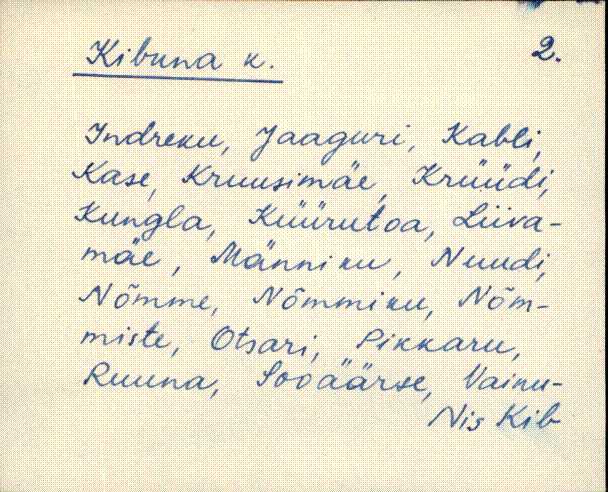 Kibuna k.
2.
Indreku, Jaaguri, Kabli,
Kase, Kruusimäe, Krüüdi,
Kungla, Küürutoa, Liiva-
mäe, Männiku, Nuudi,
Nõmme, Nõmmiku, Nõm-
miste, Otsari, Pikkaru,
Ruuna, Sooäärse, Vainu-
Nis Kib